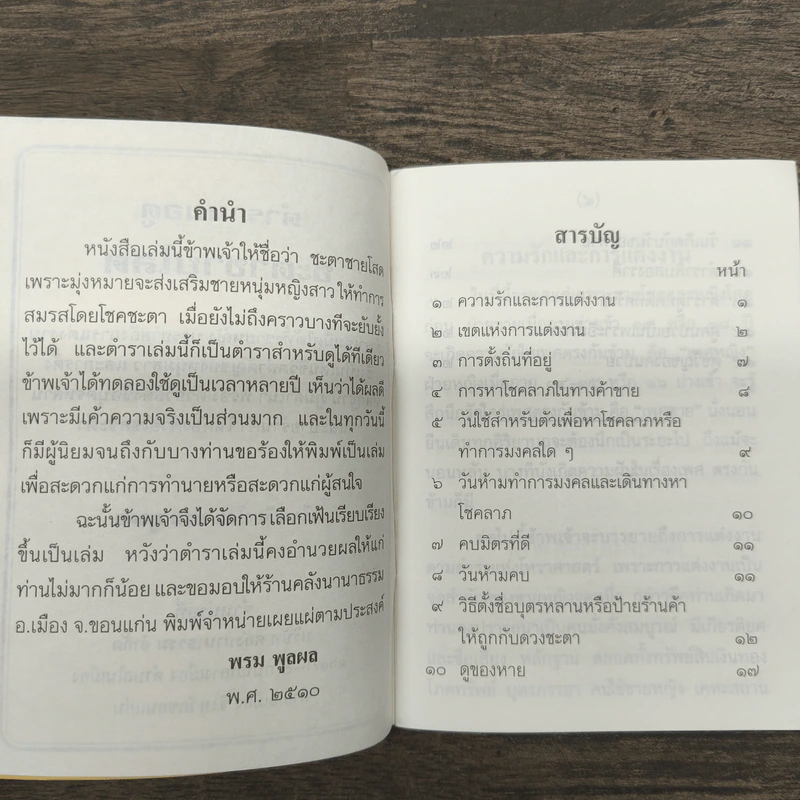 คำนำ
หนังสือเล่มนี้ข้าพเจ้าให้ชื่อว่า ชะตาชายโสด
เพราะมุ่งหมายจะส่งเสริมชายหนุ่มหญิงสาว ให้ทำการ
สมรสโดยโชคชะตา เมื่อยังไม่ถึงคราวบางทีจะยับยั้ง
ไว้ได้ และตำราเล่มนี้ก็เป็นตำราสำหรับดูได้ทีเดียว
ข้าพเจ้าได้ทดลองใช้ดูเป็นเวลาหลายปี เห็นว่าได้ผลดี
เพราะมีเค้าความจริงเป็นส่วนมาก และในทุกวันนี้
ก็มีผู้นิยมจนถึงกับบางท่านขอร้องให้พิมพ์เป็นเล่ม
เพื่อสะดวกแก่การทำนายหรือสะดวกแก่ผู้สนใจ
ฉะนั้นข้าพเจ้าจึงได้จัดการ เลือกเฟ้นเรียบเรียง
ขึ้นเป็นเล่ม หวังว่าตำราเล่มนี้คงอำนวยผลให้แก่
ท่านไม่มากก็น้อย และขอมอบให้ร้านคลังนานาธรรม
อ.เมือง จ.ขอนแก่น พิมพ์จำหน่ายเผยแผ่ตามประสงค์
พรม พูลผล
พ.ศ. ๒๕๑๐
สารบัญ
หน้า
๑ ความรักและการแต่งงาน ๑
๒ เขตแห่งการแต่งงาน ๒
๓ การตั้งถิ่นที่อยู่ ๗
๔ การหาโชคลาภในทางค้าขาย ๘
๕ วันใช้สำหรับตัวเพื่อหาโชคลาภหรือ
ทำการมงคลใด ๆ ๙
๖ วันห้ามทำการมงคลและเดินทางหา
โชคลาภ ๑๐
๗ คบมิตรที่ดี ๑๑
๘ วันห้ามคบ ๑๑
๙ วิธีตั้งชื่อบุตรหลานหรือป้ายร้านค้า
ให้ถูกกับดวงชะตา ๑๒
๑๐ ดูของหาย ๑๗